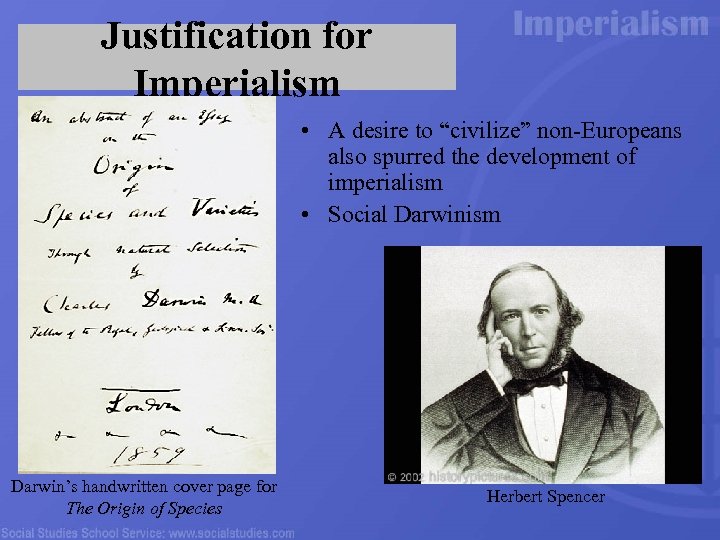 Imperialism
Justification for
Imperialism
An abstract of an Essay
on the
Origin
of
Species and Varieties
Through natural Selection
by
Charles Darwin M.A
Fellow of the Royal, Geological & Linn. Soc.
London
1859
• A desire to “civilize” non-Europeans
also spurred the development of
imperialism
• Social Darwinism
© 2002 historypictures.com
Darwin’s handwritten cover page for
The Origin of Species
Herbert Spencer
Social Studies School Service: www.socialstudies.com